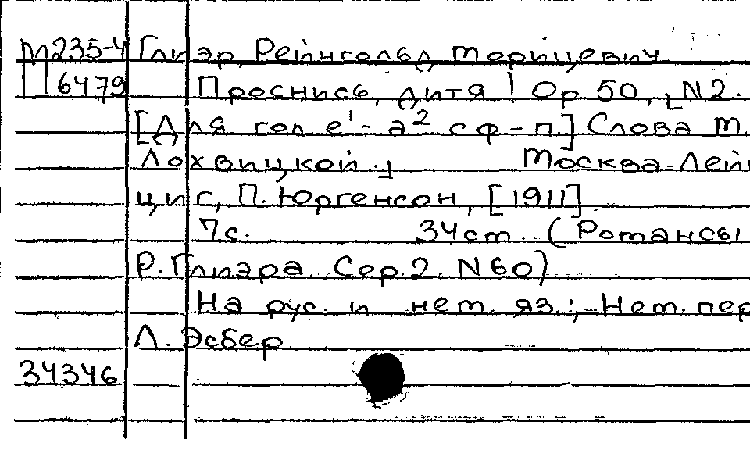 М235-4 Глиэр, Рейнгольд Морицевич
П 6479 Проснись, дитя! Ор 50, N2.
[Для гол e¹-a² с ф-п.] Слова М.
Лохвицкой. Москва-Лейп
циг, П. Юргенсон, [1911]
7с. 34см (Романсы
Р. Глиэра. Сер.2. N60)
На рус. и нем. яз.; Нем. пер
Л. Эсбер
34346